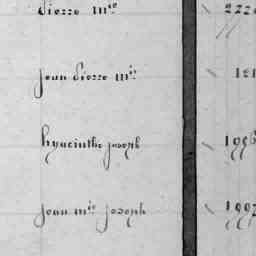 Pierre M.ie \ 222
Jean Pierre M.ie \ 121
hyacinthe joseph \ 1996
jean m.ie joseph \ 1997